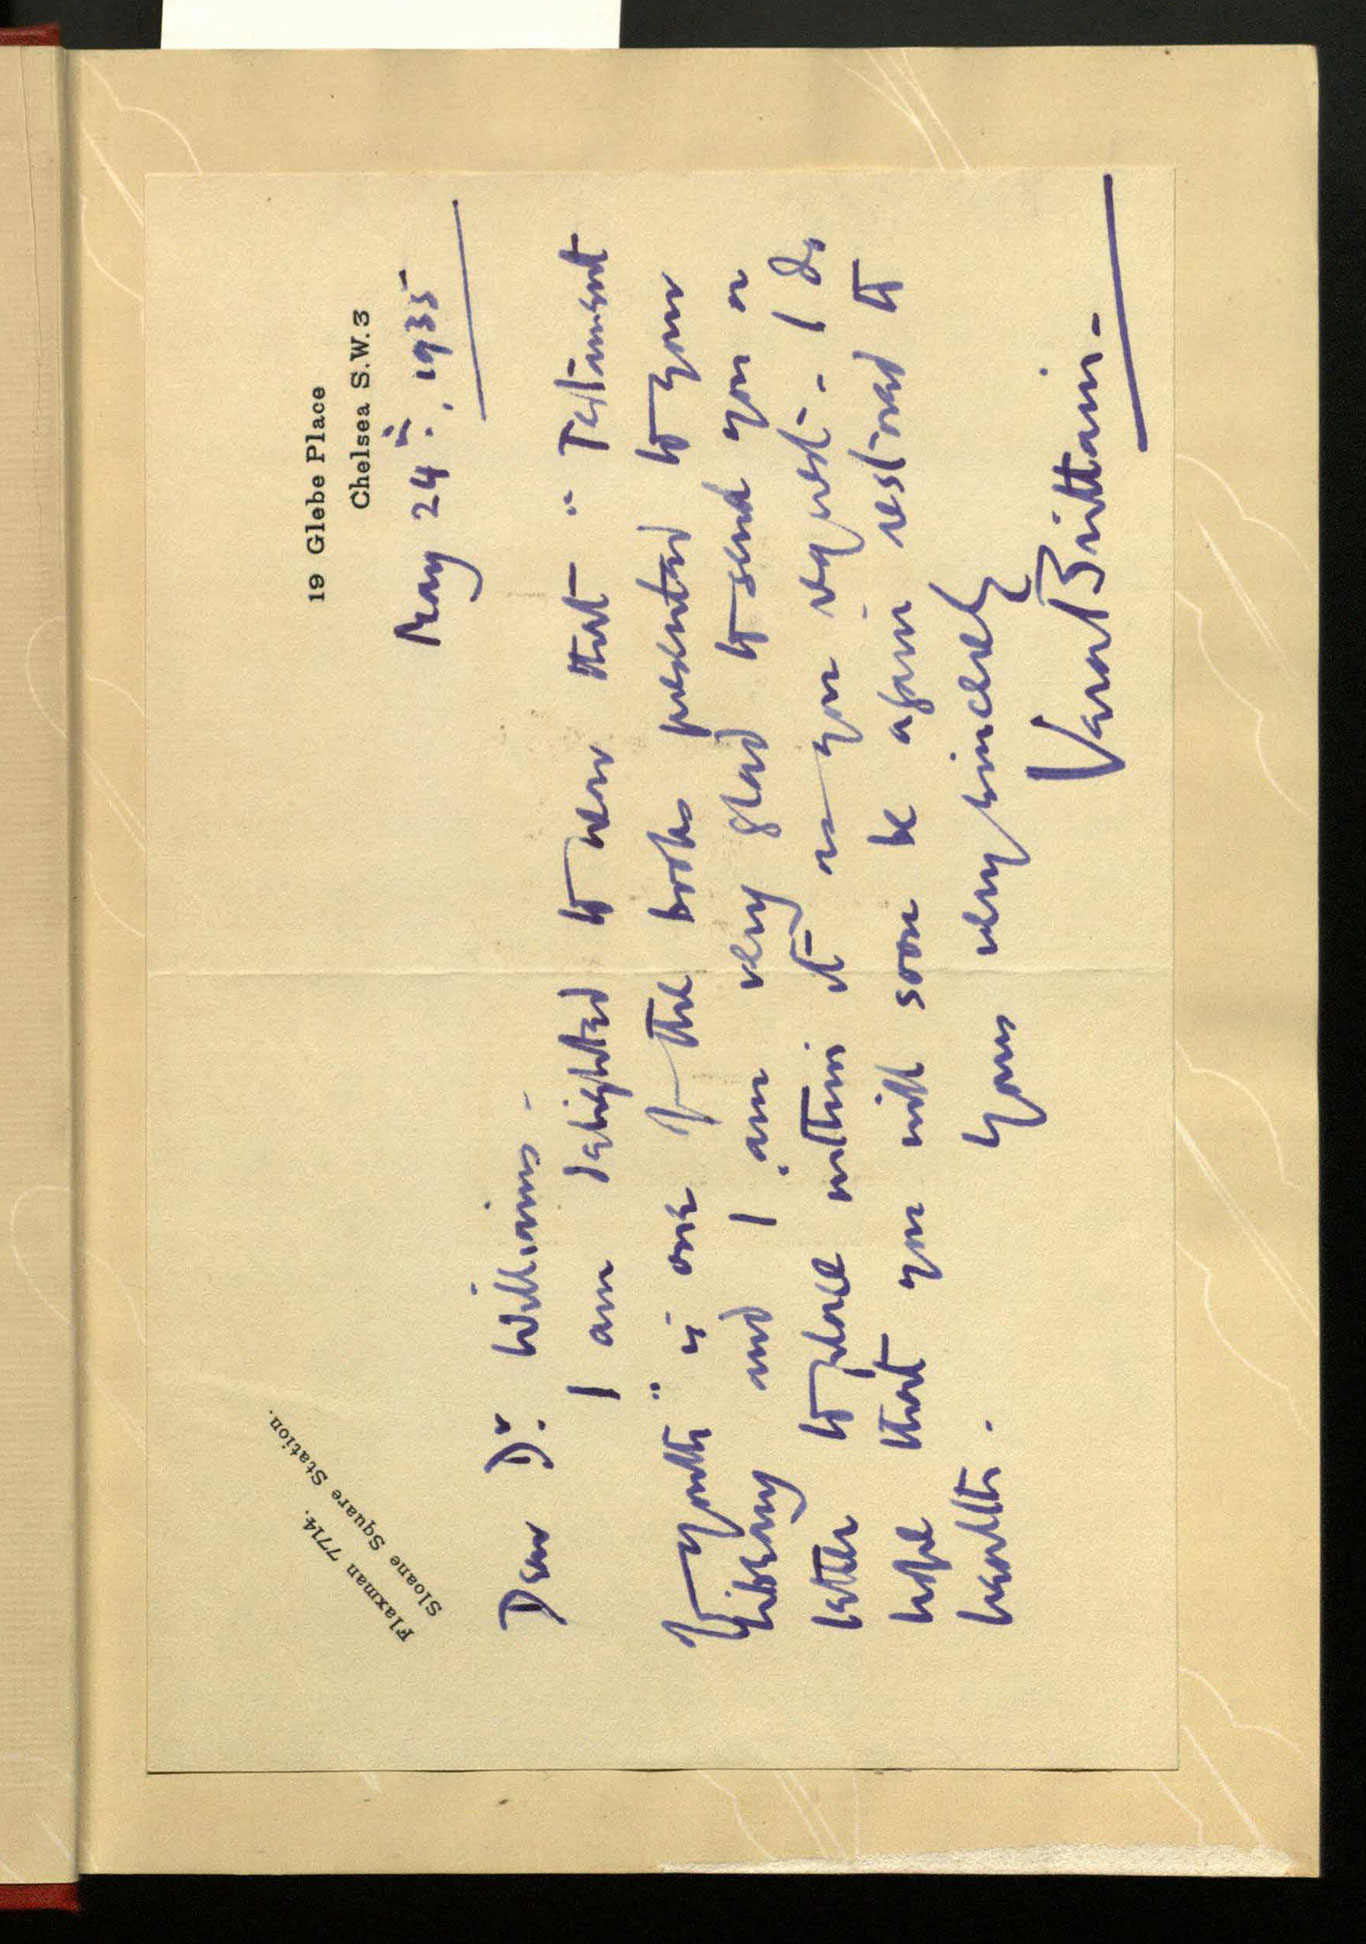 Flaxman 7714.
Sloane Square Station.
19 Glebe Place
Chelsea S.W.3
May 24th, 1935
Dear Dr. Williams -
I am delighted to hear that "Testament
of Youth" is one of the books presented to your
library and I am very glad to send you a
letter to place within it as you request. - I do
hope that you will soon be again restored to
health -
Yours very sincerely
Vera Brittain -